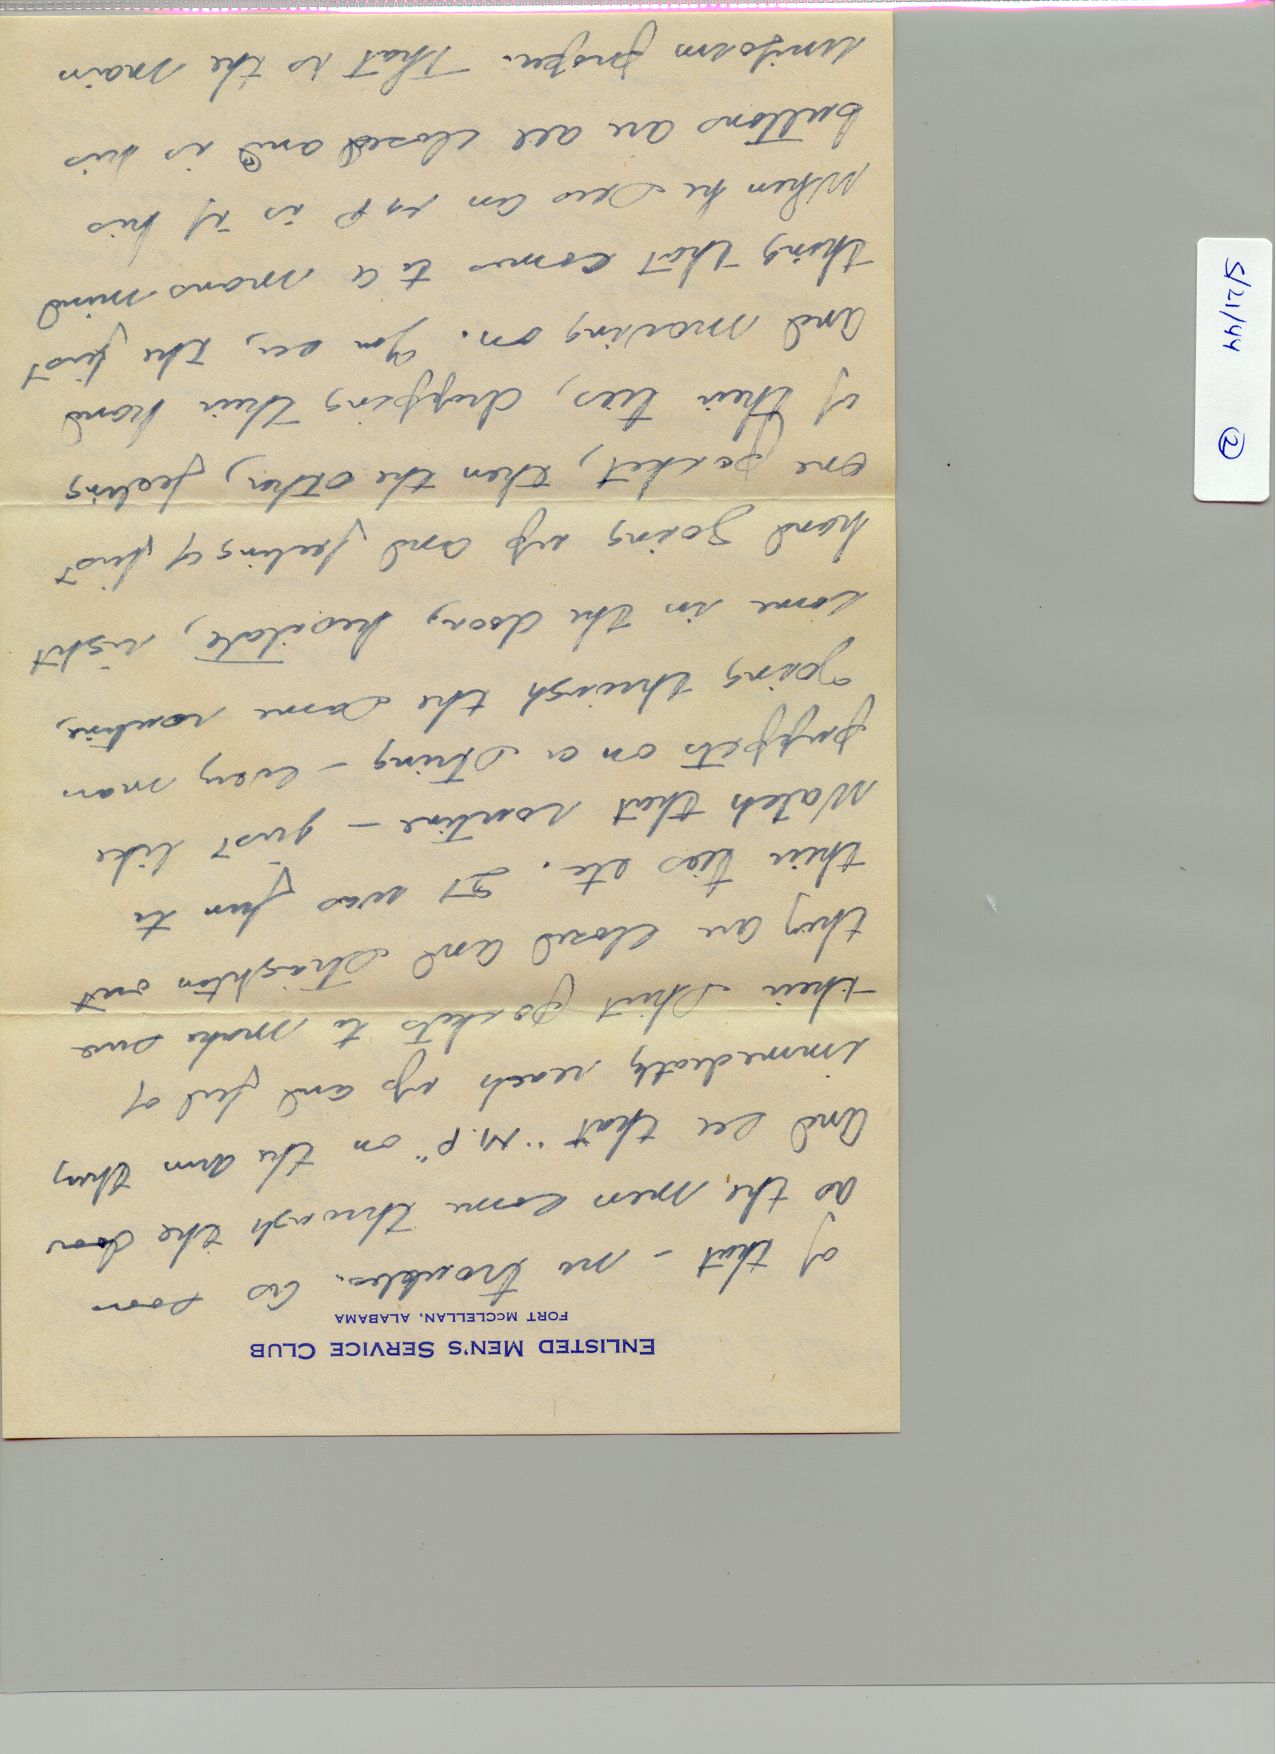 ENLISTED MEN'S SERVICE CLUB
FORT McCLELLAN, ALABAMA
of that - no troubles. As soon
as the men come through the door
and see that "M.P" on the arm they
immediatly reach up and feel of
their shirt pockets to make sure
they are closed and straighten out
their ties etc. It was fun to
watch that routine - just like
puppets on a string - every man
going through the same routine,
come in the door, hesitate, right
hand going up and feeling of first
one pocket, then the other, feeling
of their ties, dropping their hand
and moving on. You see, the first
thing that comes to a mans mind
when he sees an MP is if his
buttons are all closed and is his
uniform proper. That is the main
5/21/44 ②